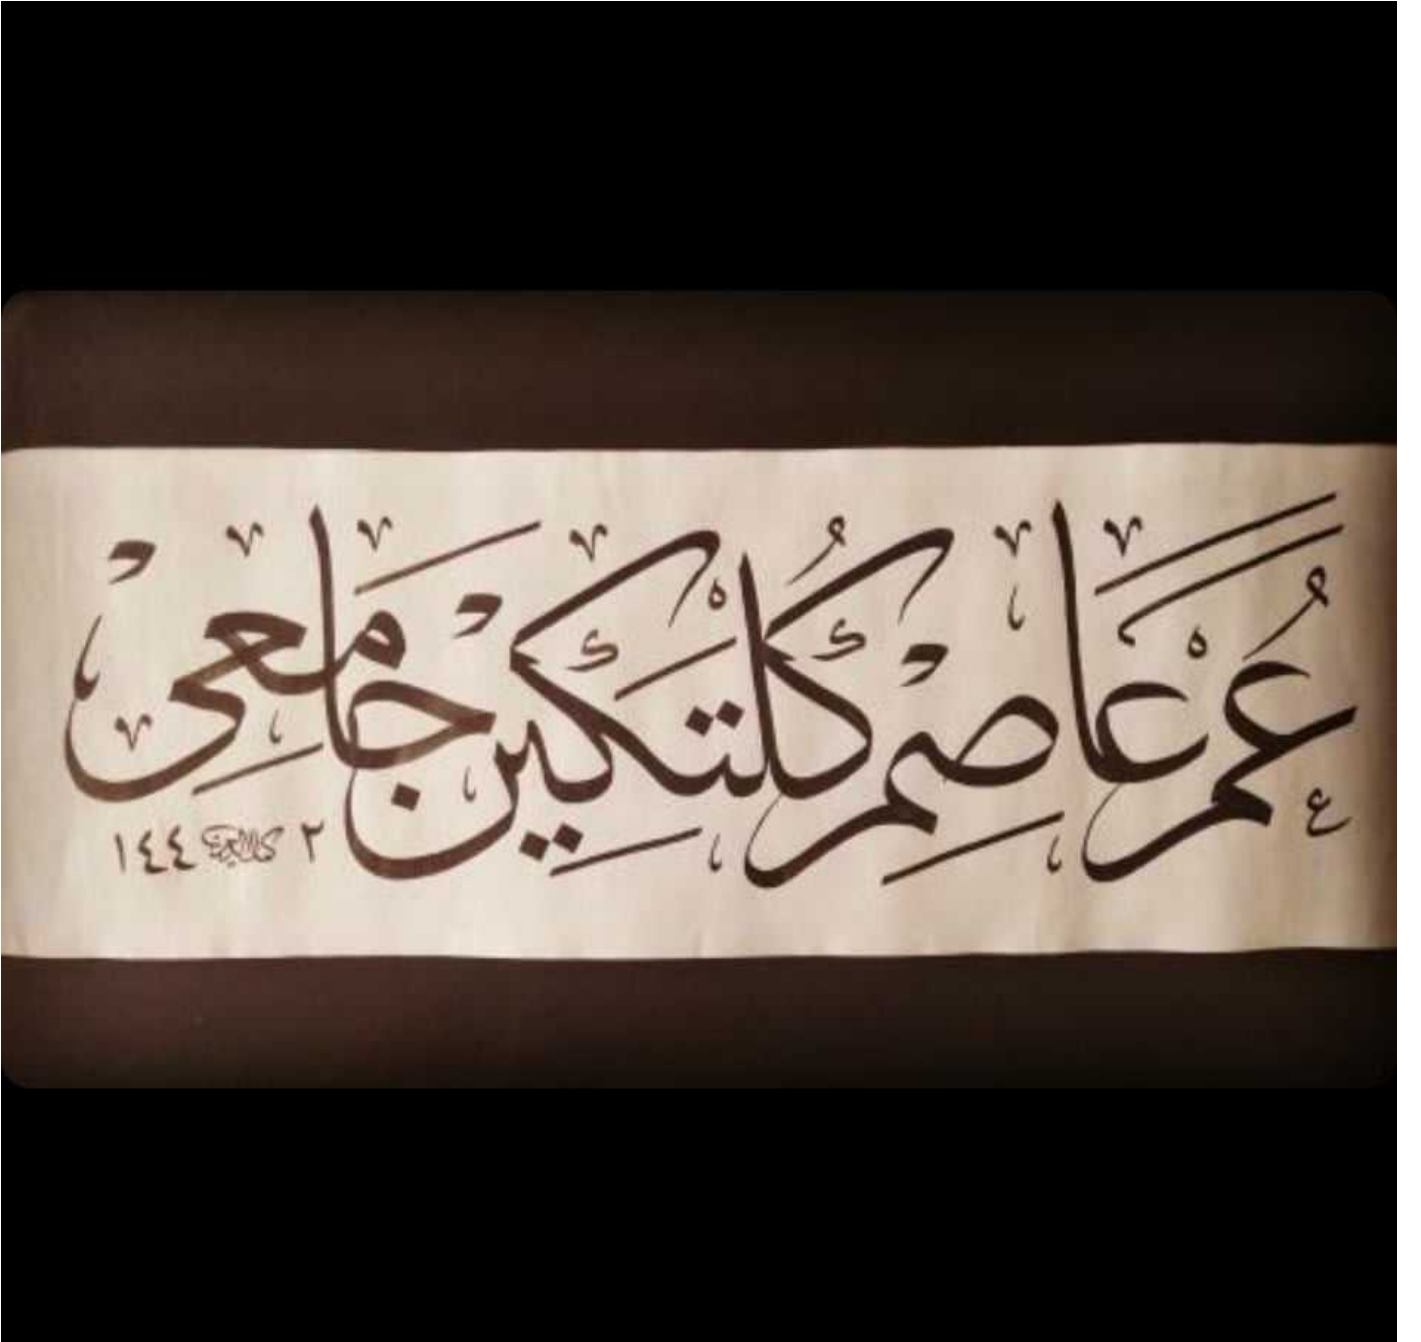 عُمَر عَاصِمْ كُلْتَكِينْ جَامَعِيْ
١٤٤٢